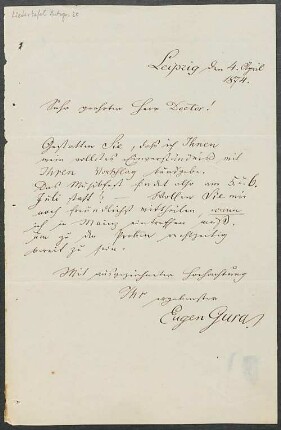 Leipzig den 4. April
1874.
Sehr geehrter Herr Doctor!
Gestatten Sie, daß ich Ihnen
mein vollstes Einverständniß mit
Ihrem Vorschlag kundgebe.
Das Musikfest findet also am 5 u 6.
Juli statt? — Wollen Sie mir
noch freundlichst mittheilen wann
ich in Mainz eintreffen muß,
um zu den Proben rechtzeitig
bereit zu sein.
Mit ausgezeichneter Hochachtung
Ihr ergebenster
Eugen Gura